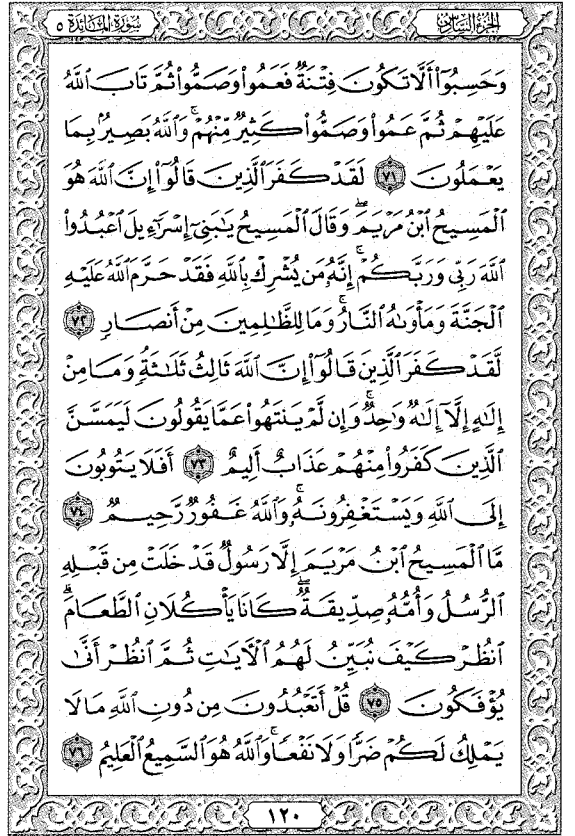 الجزء السادس
سورة المائدة ٥
وَحَسِبُوٓا۟ أَلَّا تَكُونَ فِتْنَةٌ فَعَمُوا۟ وَصَمُّوا۟ ثُمَّ تَابَ ٱللَّهُ
عَلَيْهِمْ ثُمَّ عَمُوا۟ وَصَمُّوا۟ كَثِيرٌ مِّنْهُمْ ۚ وَٱللَّهُ بَصِيرٌۢ بِمَا
يَعْمَلُونَ ٧١ لَقَدْ كَفَرَ ٱلَّذِينَ قَالُوٓا۟ إِنَّ ٱللَّهَ هُوَ
ٱلْمَسِيحُ ٱبْنُ مَرْيَمَ ۖ وَقَالَ ٱلْمَسِيحُ يَـٰبَنِىٓ إِسْرَٰٓءِيلَ ٱعْبُدُوا۟
ٱللَّهَ رَبِّى وَرَبَّكُمْ ۖ إِنَّهُۥ مَن يُشْرِكْ بِٱللَّهِ فَقَدْ حَرَّمَ ٱللَّهُ عَلَيْهِ
ٱلْجَنَّةَ وَمَأْوَىٰهُ ٱلنَّارُ ۖ وَمَا لِلظَّـٰلِمِينَ مِنْ أَنصَارٍ ٧٢
لَّقَدْ كَفَرَ ٱلَّذِينَ قَالُوٓا۟ إِنَّ ٱللَّهَ ثَالِثُ ثَلَـٰثَةٍ ۘ وَمَا مِنْ
إِلَـٰهٍ إِلَّآ إِلَـٰهٌ وَٰحِدٌ ۚ وَإِن لَّمْ يَنتَهُوا۟ عَمَّا يَقُولُونَ لَيَمَسَّنَّ
ٱلَّذِينَ كَفَرُوا۟ مِنْهُمْ عَذَابٌ أَلِيمٌ ٧٣ أَفَلَا يَتُوبُونَ
إِلَى ٱللَّهِ وَيَسْتَغْفِرُونَهُۥ ۚ وَٱللَّهُ غَفُورٌ رَّحِيمٌ ٧٤
مَّا ٱلْمَسِيحُ ٱبْنُ مَرْيَمَ إِلَّا رَسُولٌ قَدْ خَلَتْ مِن قَبْلِهِ
ٱلرُّسُلُ وَأُمُّهُۥ صِدِّيقَةٌ ۖ كَانَا يَأْكُلَانِ ٱلطَّعَامَ ۗ
ٱنظُرْ كَيْفَ نُبَيِّنُ لَهُمُ ٱلْـَٔايَـٰتِ ثُمَّ ٱنظُرْ أَنَّىٰ
يُؤْفَكُونَ ٧٥ قُلْ أَتَعْبُدُونَ مِن دُونِ ٱللَّهِ مَا لَا
يَمْلِكُ لَكُمْ ضَرًّا وَلَا نَفْعًا ۚ وَٱللَّهُ هُوَ ٱلسَّمِيعُ ٱلْعَلِيمُ ٧٦
١٢٠